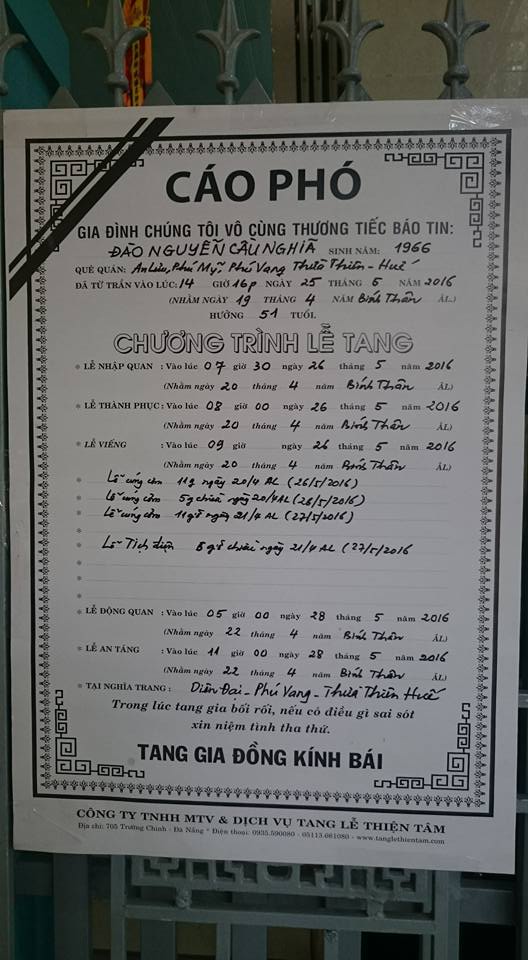 CÁO PHÓ
GIA ĐÌNH CHÚNG TÔI VÔ CÙNG THƯƠNG TIẾC BÁO TIN:
ĐÀO NGUYỄN CẦU NGHĨA SINH NĂM: 1966
QUÊ QUÁN: An Lưu, Phú Mỹ, Phú Vang Thừa Thiên - Huế
ĐÃ TỪ TRẦN VÀO LÚC: 14 GIỜ 16p NGÀY 25 THÁNG 5 NĂM 2016
(NHẰM NGÀY 19 THÁNG 4 NĂM Bính Thân ÂL.)
HƯỞNG 51 TUỔI.
CHƯƠNG TRÌNH LỄ TANG
* LỄ NHẬP QUAN : Vào lúc 07 giờ 30 ngày 26 tháng 5 năm 2016
(Nhằm ngày 20 tháng 4 năm Bính Thân ÂL)
* LỄ THÀNH PHỤC : Vào lúc 08 giờ 00 ngày 26 tháng 5 năm 2016
(Nhằm ngày 20 tháng 4 năm Bính Thân ÂL)
* LỄ VIẾNG : Vào lúc 09 giờ ngày 26 tháng 5 năm 2016
(Nhằm ngày 20 tháng 4 năm Bính Thân ÂL)
* Lễ cúng cơm 11g ngày 20/4 AL (26/5/2016)
* Lễ cúng cơm 5g chiều ngày 20/4 AL (26/5/2016)
* Lễ cúng cơm 11 giờ ngày 21/4 AL (27/5/2016)
*
* Lễ Tịch điện 5 giờ chiều ngày 21/4 AL (27/5/2016
*
*
*
* LỄ ĐỘNG QUAN : Vào lúc 05 giờ 00 ngày 28 tháng 5 năm 2016
(Nhằm ngày 22 tháng 4 năm Bính Thân ÂL)
* LỄ AN TÁNG : Vào lúc 11 giờ 00 ngày 28 tháng 5 năm 2016
(Nhằm ngày 22 tháng 4 năm Bính Thân ÂL)
* TẠI NGHĨA TRANG : Diên Đại - Phú Vang - Thừa Thiên Huế
Trong lúc tang gia bối rối, nếu có điều gì sai sót
xin niệm tình tha thứ.
TANG GIA ĐỒNG KÍNH BÁI
CÔNG TY TNHH MTV & DỊCH VỤ TANG LỄ THIỆN TÂM
Địa chỉ: 705 Trường Chinh - Đà Nẵng * Điện thoại: 0935.590080 - 05113.661080 - www.tanglethientam.com